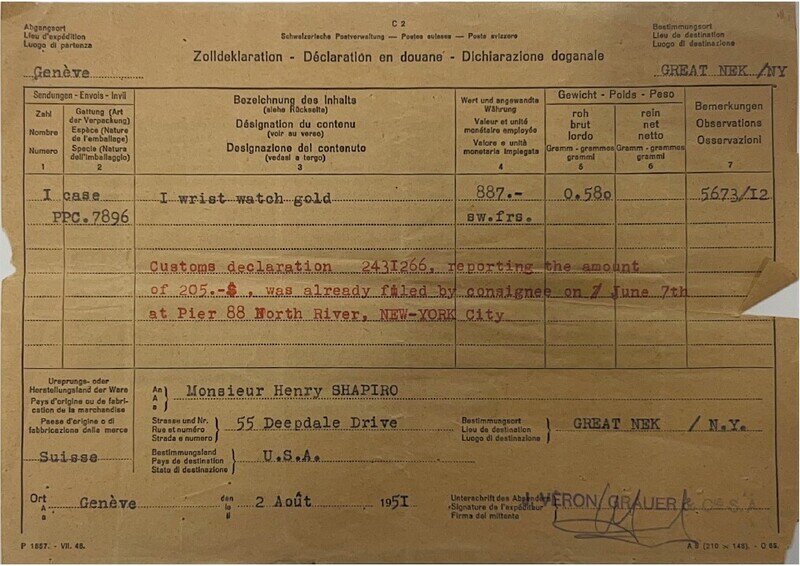 C 2
Abgangsort
Lieu d'expédition
Luogo di partenza
Schweizerische Postverwaltung — Postes suisses — Poste svizzere
Bestimmungsort
Lieu de destination
Luogo di destinazione
Zolldeklaration - Déclaration en douane - Dichiarazione doganale
Genève
GREAT NEK /NY
Sendungen - Envois - Invii
Zahl
Nombre
Numero
1
Gattung (Art
der Verpackung)
Espèce (Nature
de l'emballage)
Specie (Natura
dell'imballaggio)
2
Bezeichnung des Inhalts
(siehe Rückseite)
Désignation du contenu
(voir au verso)
Designazione del contenuto
(vedasi a tergo)
3
Wert und angewandte
Währung
Valeur et unité
monétaire employée
Valore e unità
monetaria impiegata
4
Gewicht - Poids - Peso
roh
brut
lordo
Gramm - grammes
grammi
5
rein
net
netto
Gramm - grammes
grammi
6
Bemerkungen
Observations
Osservazioni
7
I case
PPC.7896
I wrist watch gold
887.-
sw.frs.
0.580
5673/I2
Customs declaration 243I266, reporting the amount
of 205.-$ , was already filed by consignee on / June 7th
at Pier 88 North River, NEW-YORK City
Ursprungs- oder
Herstellungsland der Ware
Pays d'origine ou de fabri-
cation de la marchandise
Paese d'origine o di
fabbricazione della merce
Suisse
An
A
A
Monsieur Henry SHAPIRO
Strasse und Nr.
Rue et numéro
Strada e numero
55 Deepdale Drive
Bestimmungsort
Lieu de destination
Luogo di destinazione
GREAT NEK / N.Y.
Bestimmungsland
Pays de destination
Stato di destinazione
U.S.A.
Ort
A
A
Genève
den
le
il
2 Août 195I
Unterschrift des Absenders
Signature de l'expéditeur
Firma del mittente
J. VÉRON, GRAUER & CIE S.A
P 1857. - VII. 48.
A 5 (210 × 148). - Q 65.